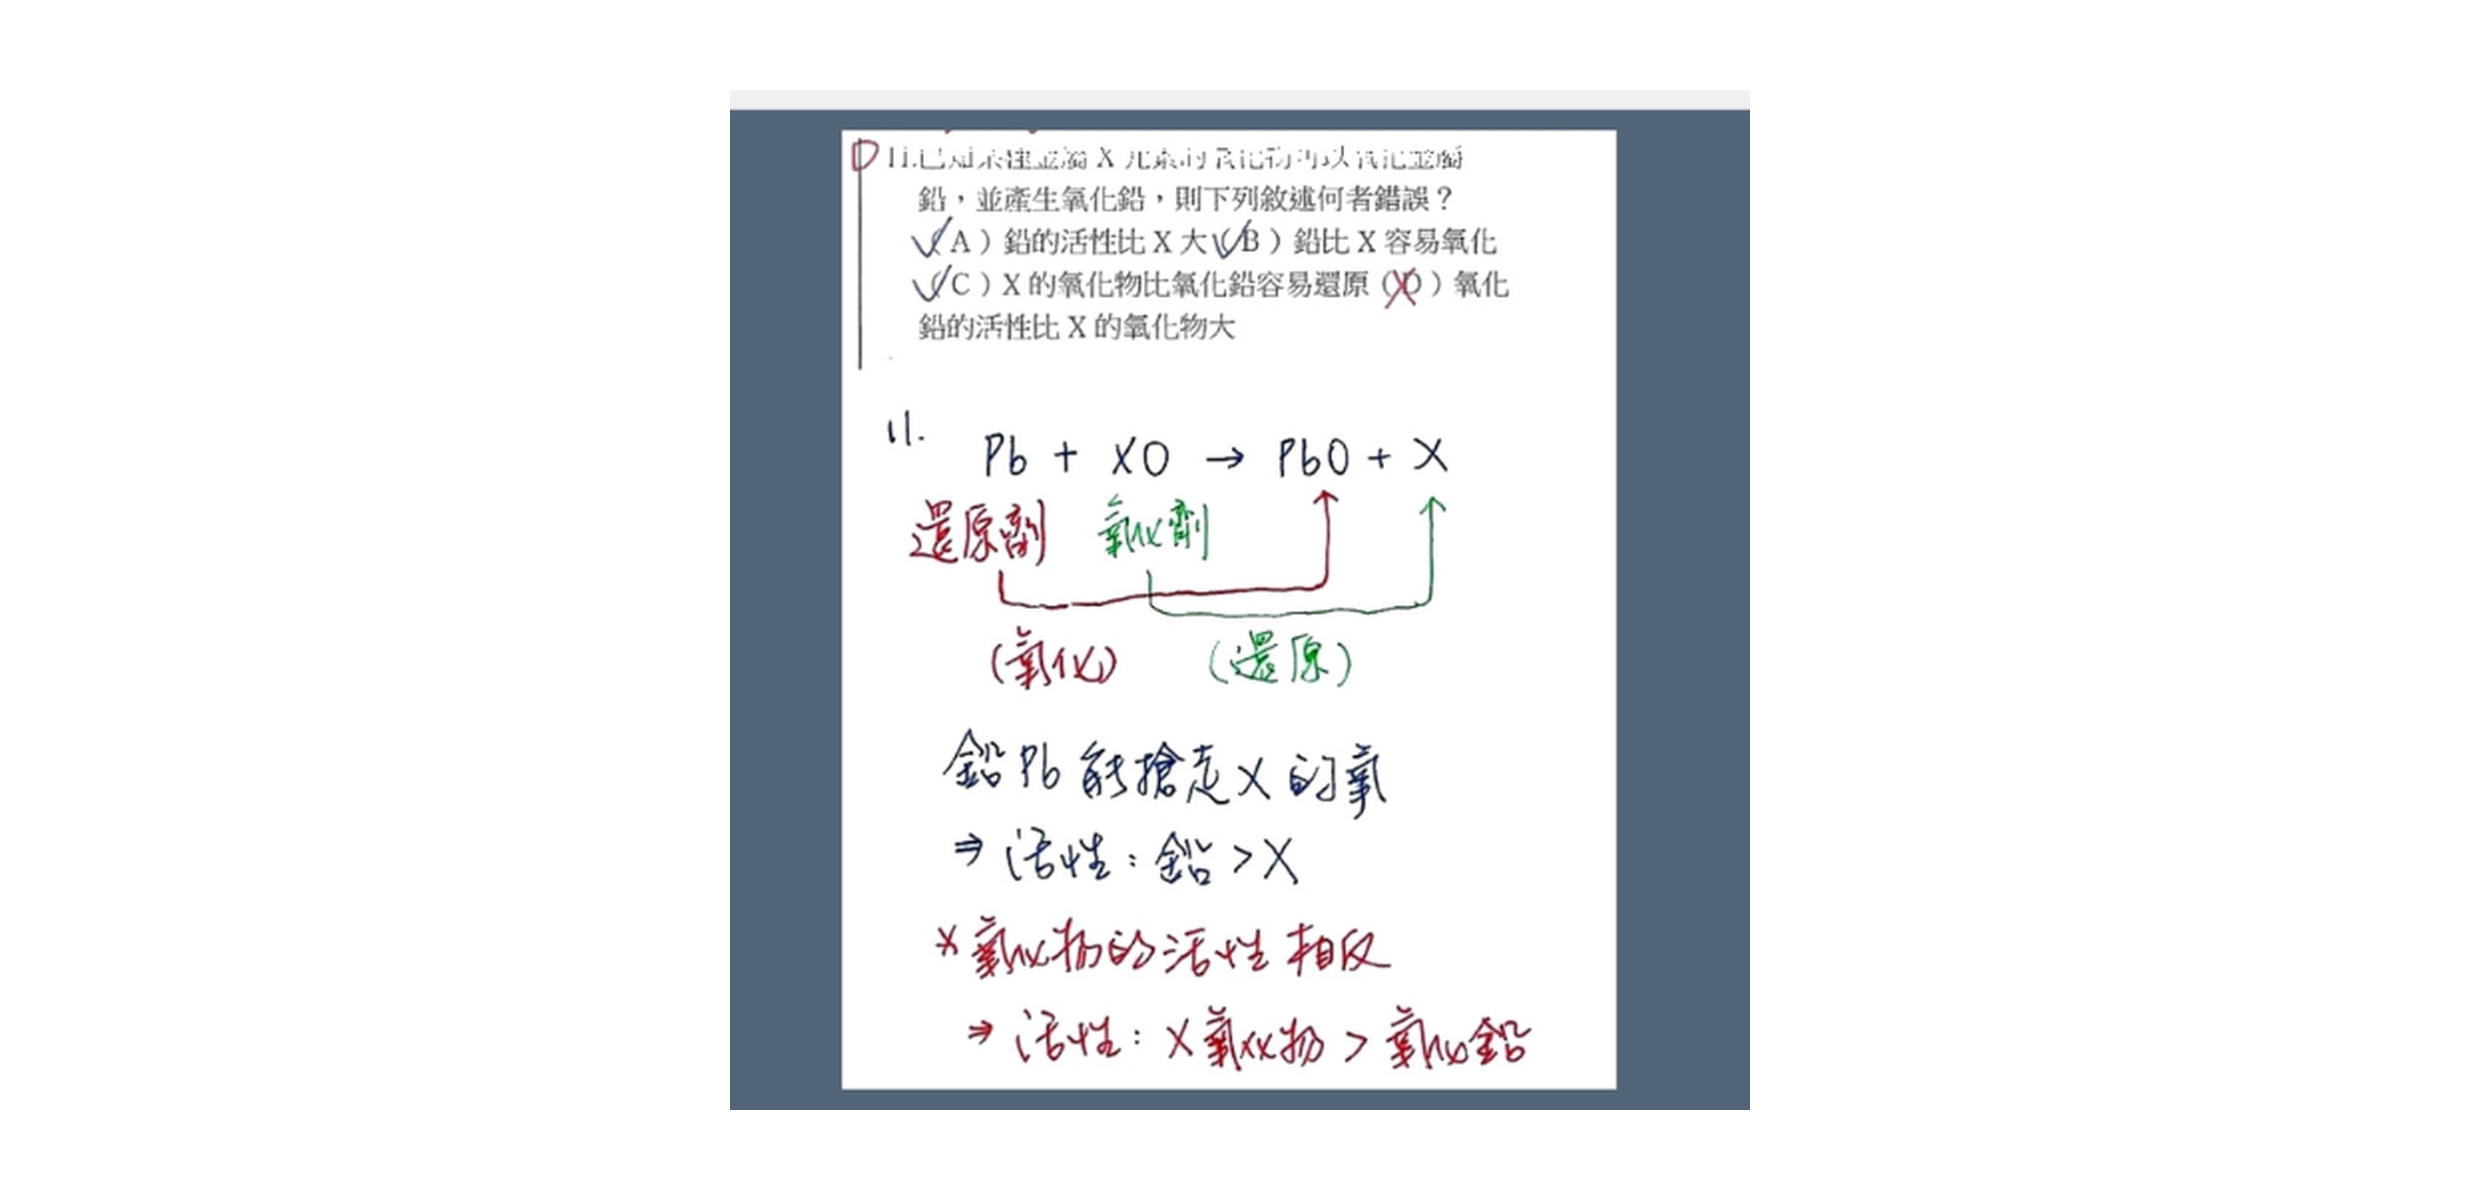 D 11.已知某種金屬 X 元素的氧化物可以氧化金屬
鉛,並產生氧化鉛,則下列敘述何者錯誤?
(A)鉛的活性比 X 大(B)鉛比 X 容易氧化
(C)X 的氧化物比氧化鉛容易還原(D)氧化
鉛的活性比 X 的氧化物大
11.
Pb + XO → PbO + X
還原劑 氧化劑
(氧化) (還原)
鉛Pb能搶走X的氧
⇒ 活性:鉛>X
*氧化物的活性相反
⇒ 活性:X氧化物 > 氧化鉛